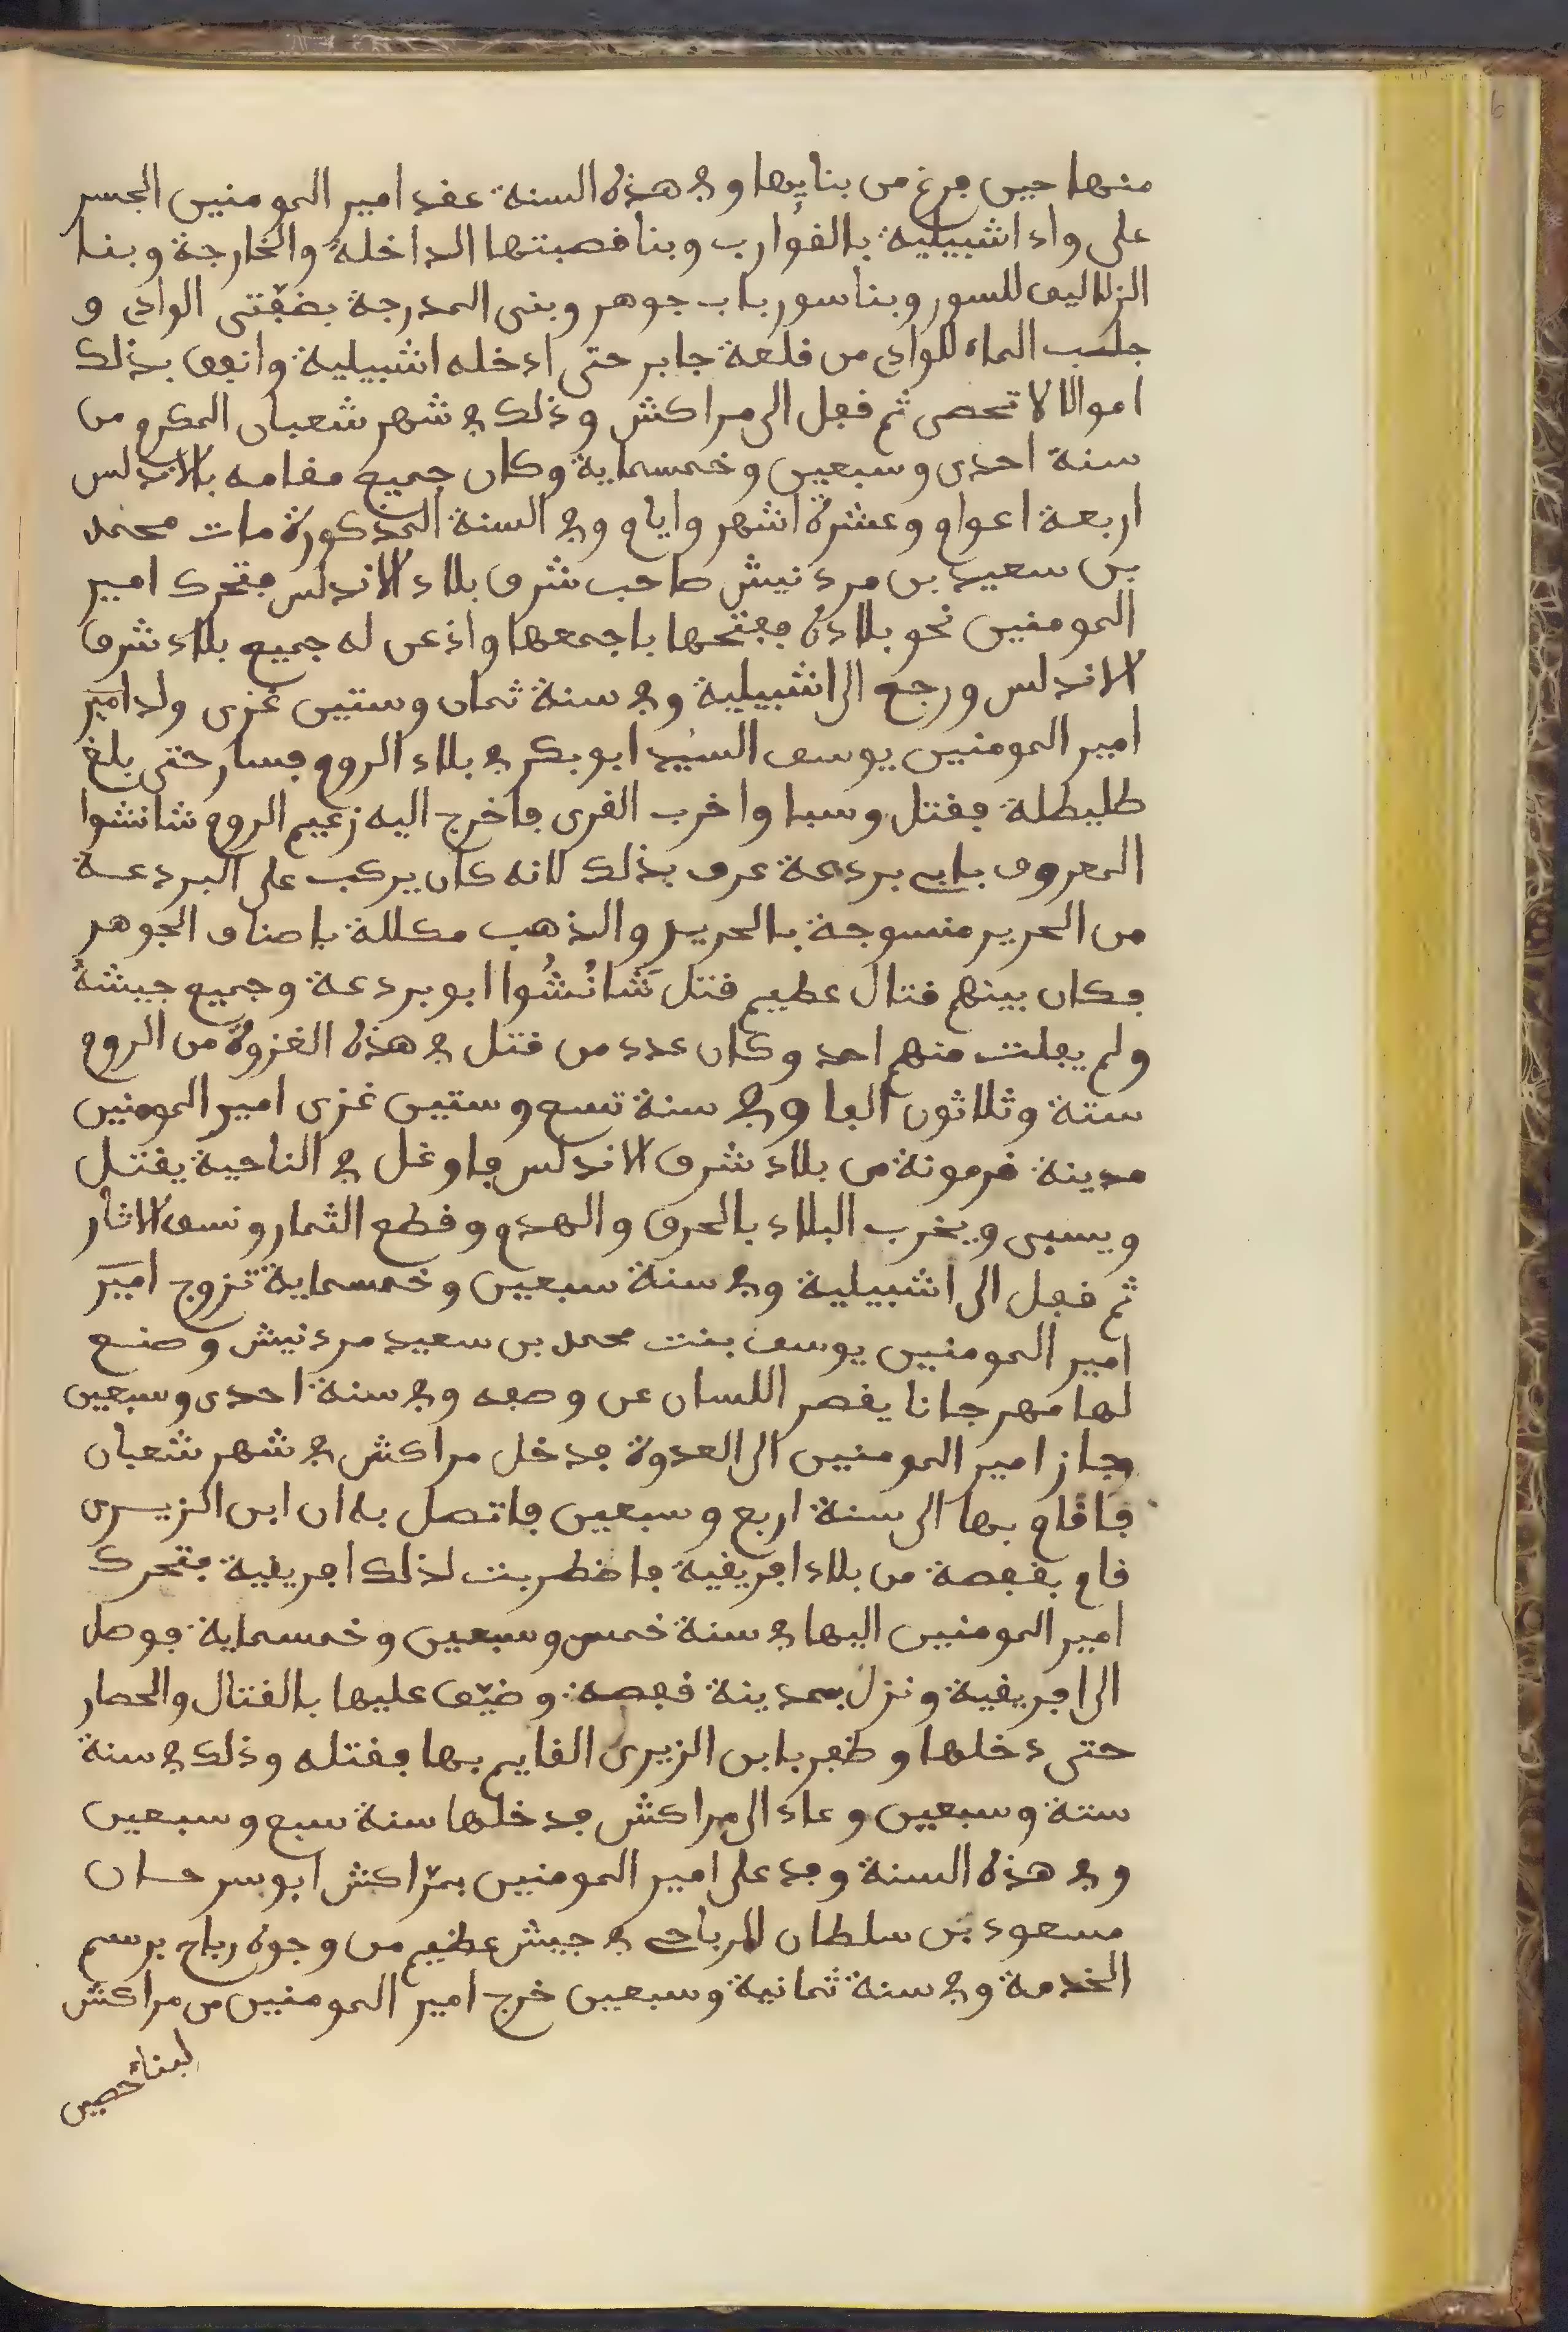 منها حين فرغ من بنايها وفي هذه السنة عقد امير المومنين الجسر
على واد اشبيلية بالقوارب وبنا قصبتها الداخلة والخارجة وبنا
الزلاليق للسور وبنا سور باب جوهر وبنى المدرجة بضفتى الوادى و
جلب الماء للوادى من قلعة جابر حتى ادخله اشبيلية وانفق بذلك
اموالا لا تحصى ثم قفل الى مراكش وذلك في شهر شعبان المكرم من
سنة احدى وسبعين وخمسماية وكان جميع مقامه بالاندلس
اربعة اعوام وعشرة اشهر وايام وفي السنة المذكورة مات محمد
بن سعيد بن مردنيش صاحب شرق بلاد الاندلس فتحرك امير
المومنين نحو بلاده ففتحها باجمعها واذعن له جميع بلاد شرق
الاندلس ورجع الى اشبيلية وفي سنة ثمان وستين غزى ولد امير
امير المومنين يوسف السيد ابو بكر في بلاد الروم فسار حتى بلغ
طليطلة فقتل وسبا واخرب القرى فاخرج اليه زعيم الروم شانشوا
المعروف بابى بردعة عرف بذلك لانه كان يركب على البردعة
من الحرير منسوجة بالحرير والذهب مكللة باصناف الجوهر
فكان بينهم قتال عظيم قتل شانشوا ابو بردعة وجميع جيشه
ولم يفلت منهم احد وكان عدد من قتل في هذه الغزوة من الروم
ستة وثلاثون الفا وفي سنة تسع وستين غزى امير المومنين
مدينة قرمونة من بلاد شرق الاندلس فاوغل في الناحية يقتل
ويسبى ويخرب البلاد بالحرق والهدم وقطع الثمار ونسف الاثار
ثم قفل الى اشبيلية وفي سنة سبعين وخمسماية تزوج امير
امير المومنين يوسف بنت محمد بن سعيد مردنيش وصنع
لها مهرجانا يقصر اللسان عن وصفه وفي سنة احدى وسبعين
جاز امير المومنين الى العدوة فدخل مراكش في شهر شعبان
فاقام بها الى سنة اربع وسبعين فاتصل به ان ابن الزيرى
قام بقفصة من بلاد افريقية فاضطربت لذلك افريقية فتحرك
امير المومنين اليها في سنة خمس وسبعين وخمسماية فوصل
الى افريقية ونزل بمدينة قفصة وضيق عليها بالقتال والحصار
حتى دخلها وظفر بابن الزيرى القايم بها فقتله وذلك في سنة
ستة وسبعين وعاد الى مراكش فدخلها سنة سبع وسبعين
وفي هذه السنة وفد على امير المومنين بمراكش ابو سرحان
مسعود بن سلطان الرياحي في جيش عظيم من وجوه رياح برسم
الخدمة وفي سنة ثمانية وسبعين خرج امير المومنين من مراكش
لبناء حصين